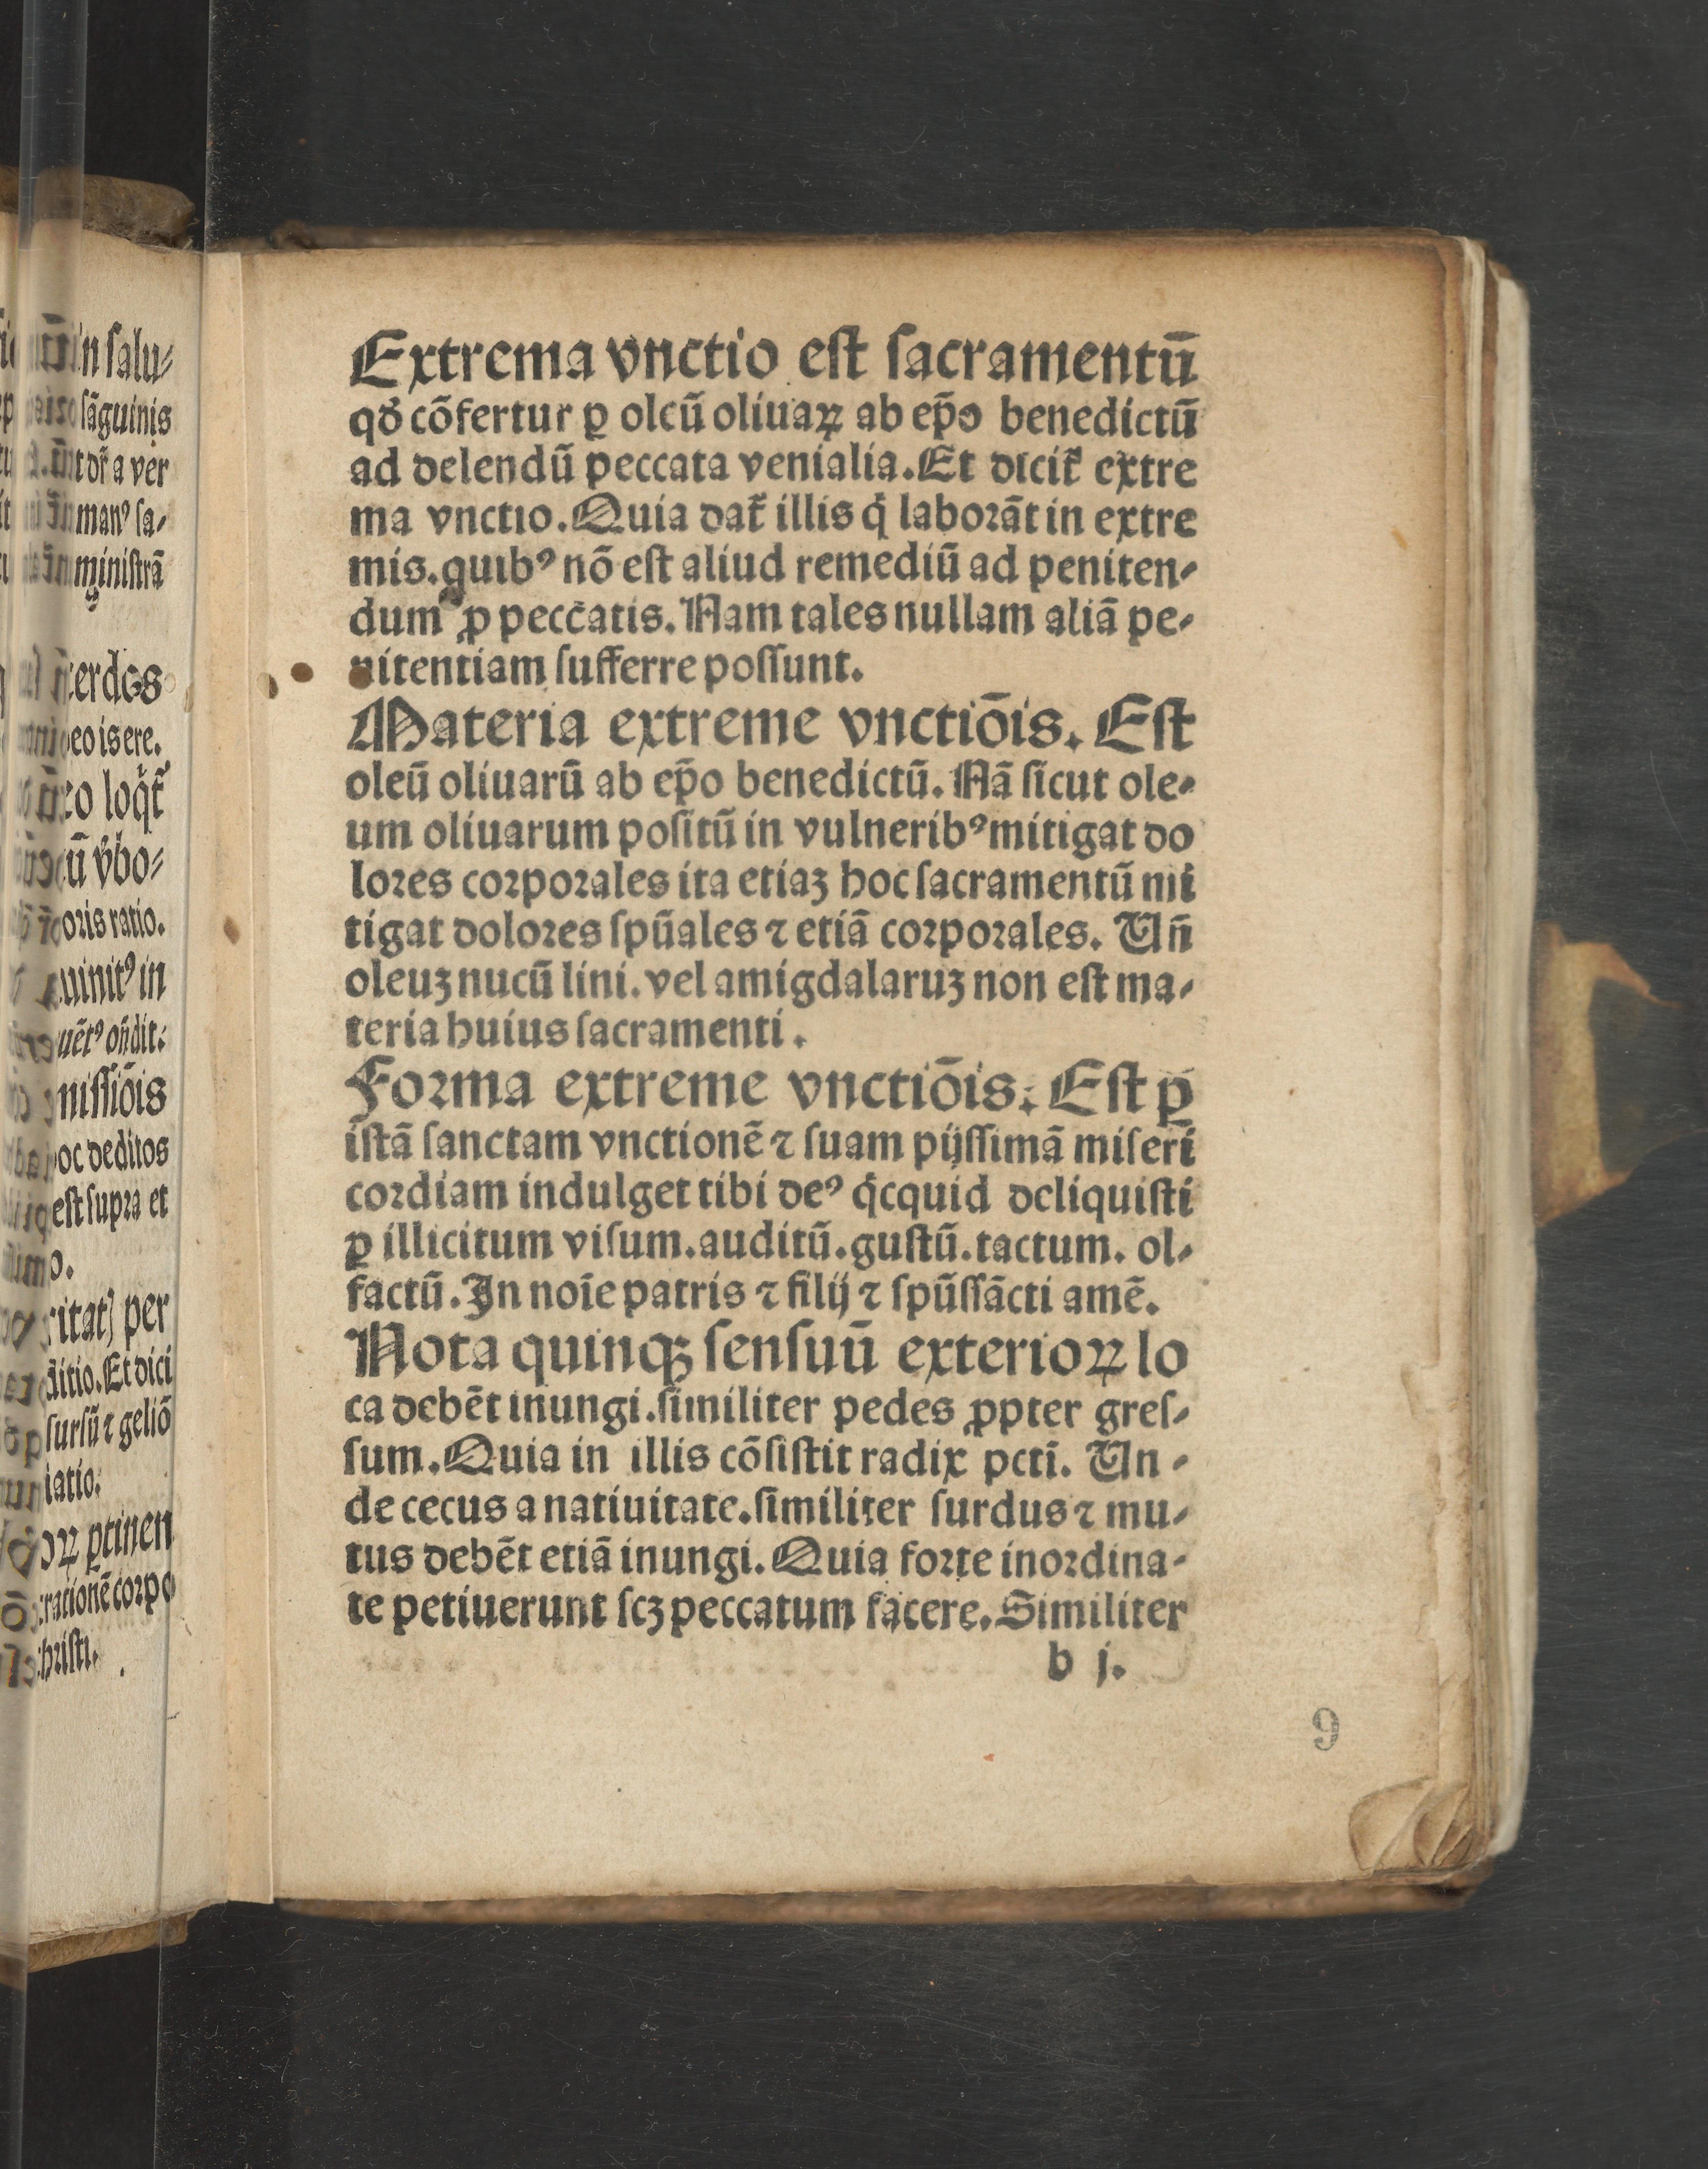 Extrema vnctio eſt ſacramentū
qđ cōfertur ꝑ oleū oliuaꝝ ab ep̄o benedictū
ad delendū peccata venialia. Et dicit̉ extre
ma vnctio. Quia dat̉ illis q̇ laborāt in extre
mis. quibꝰ nō eſt aliud remediū ad peniten⸗
dum ꝓ peccatis. Nam tales nullam aliā pe⸗
nitentiam ſufferre poſſunt.
Materia extreme vnctiōis. Eſt
oleū oliuarū ab ep̄o benedictū. Nā ſicut ole⸗
um oliuarum poſitū in vulneribꝰ mitigat do
lores corporales ita etiaꝫ hoc ſacramentū mi
tigat dolores ſpūales ⁊ etiā corporales. Vn̄
oleuꝫ nucū lini. vel amigdalaruꝫ non eſt ma⸗
teria huius ſacramenti.
Forma extreme vnctiōis. Eſt ꝑ
iſtā ſanctam vnctionē ⁊ ſuam pijſſimā miſeri
cordiam indulget tibi deꝰ q̇cquid deliquiſti
ꝑ illicitum viſum. auditū. guſtū. tactum. ol⸗
factū. In noīe patris ⁊ filij ⁊ ſpūſſācti amē.
Nota quinqꝫ ſenſuū exterioꝝ lo
ca debēt inungi. ſimiliter pedes ꝓpter greſ⸗
ſum. Quia in illis cōſiſtit radix pctī. Vn⸗
de cecus a natiuitate. ſimiliter ſurdus ⁊ mu⸗
tus debēt etiā inungi. Quia forte inordina⸗
te petiuerunt ſcꝫ peccatum facere. Similiter
b j.
9